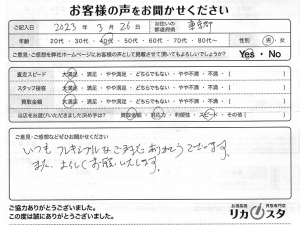 お客様の声をお聞かせください
ご記入日 2023年 3月 26日 お住いの都道府県 東京都
年齢 20代・30代・40代・50代・60代・70代・80代〜 性別 男・女
ご意見・ご感想を弊社ホームページにお客様の声として掲載させて頂いてもよろしいでしょうか? Yes・No
査定スピード 大満足・満足・やや満足・どちらでもない・やや不満・不満・( )
スタッフ接客 大満足・満足・やや満足・どちらでもない・やや不満・不満・( )
買取金額 大満足・満足・やや満足・どちらでもない・やや不満・不満・( )
当店をお選びいただきました決め手は? 買取金額・対応力・利便性・スピード・その他( )
ご意見・ご感想などぜひお聞かせください
いつもフレキシブルなご対応ありがとうございます。
また、よろしくお願いいたします。
ご協力ありがとうございました。
この度は誠にありがとうございました。
お酒買取 買取専門店
リカスタ